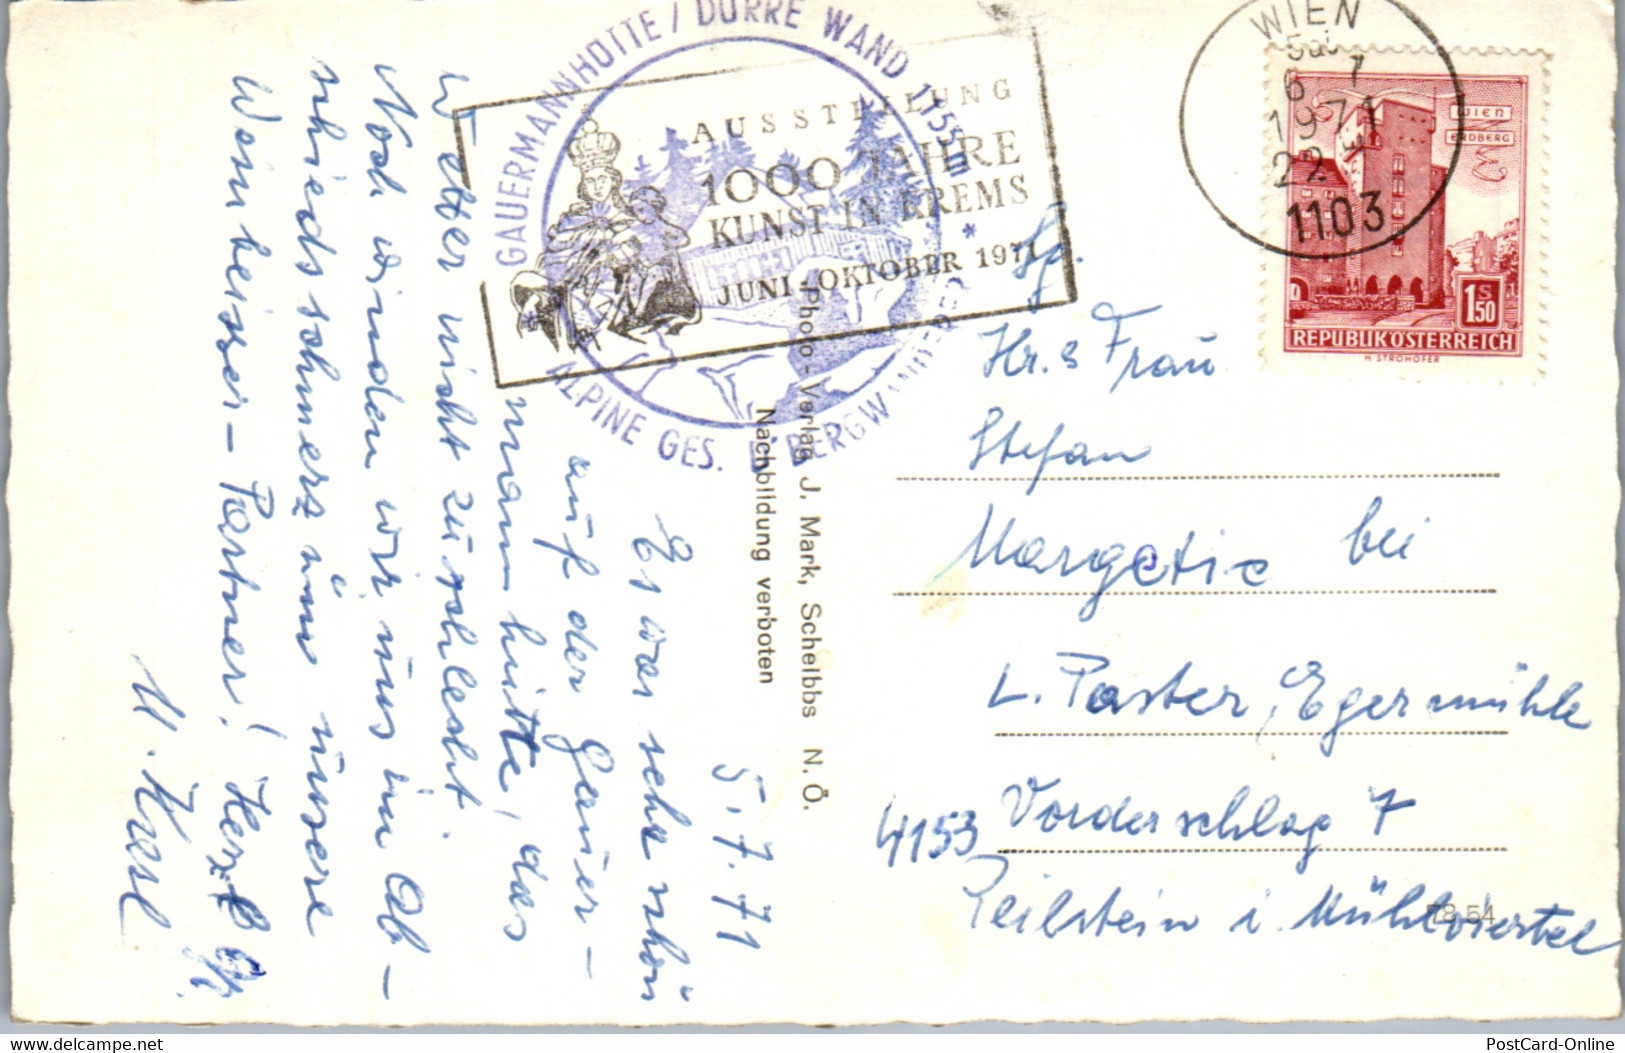 GAUERMANNHÜTTE / DÜRRE WAND 1155 m
* ALPINE GES. D' BERGWANDERER *
AUSSTELLUNG
1000 JAHRE
KUNST IN KREMS
JUNI - OKTOBER 1971
WIEN
6 7
1971
22
1103
WIEN
ERDBERG
1 S 50
REPUBLIK ÖSTERREICH
H. STROHOFER
5.7.71
Es war sehr schön
auf der Gauer-
mannhütte, das
Wetter nicht zu schlecht.
Noch winden wir uns im Ab-
schiedsschmerz um unsere
Weinbeisser-Partner! Herzl.
Photo-Verlag J. Mark, Scheibbs N. Ö.
Nachbildung verboten
Hr. & Frau
Stefan
Margetic bei
L. Paster, Egermühle
Vorderschlag 7
4153
Peilstein i. Mühlviertel
78 54
PostCard-Online